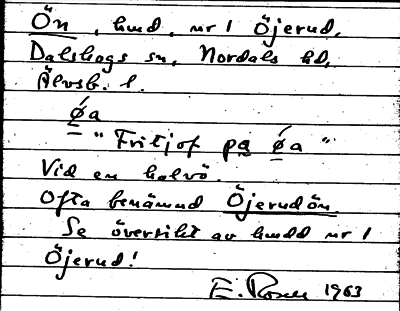 Ön, hmd, nr 1 Öjerud,
Dalskogs sn, Nordals hd,
Älvsb. l.
ǿa
"Fritjof pa ǿa"
Vid en halvö.
Ofta benämnd Öjerudön.
Se översikt av hmdd nr 1
Öjerud!
E. Rosen 1963